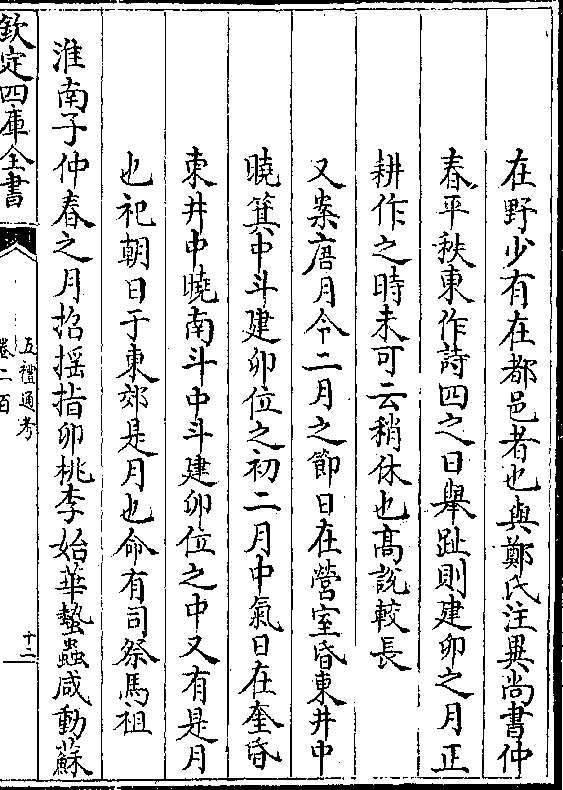 在野少有在都邑者也與鄭氏注異尚書仲
春平秩東作詩四之日舉趾則建卯之月正
耕作之時未可云稍休也髙説較長
又案唐月令二月之節日在營室昏東井中
曉箕中斗建卯位之初二月中氣日在奎昏
東井中曉南斗中斗建卯位之中又有是月
也祀朝日于東郊是月也命有司祭馬祖
淮南子仲春之月招揺指卯桃李始華蟄蟲咸動蘇
欽定四庫全書
五禮通考
卷二百
十二